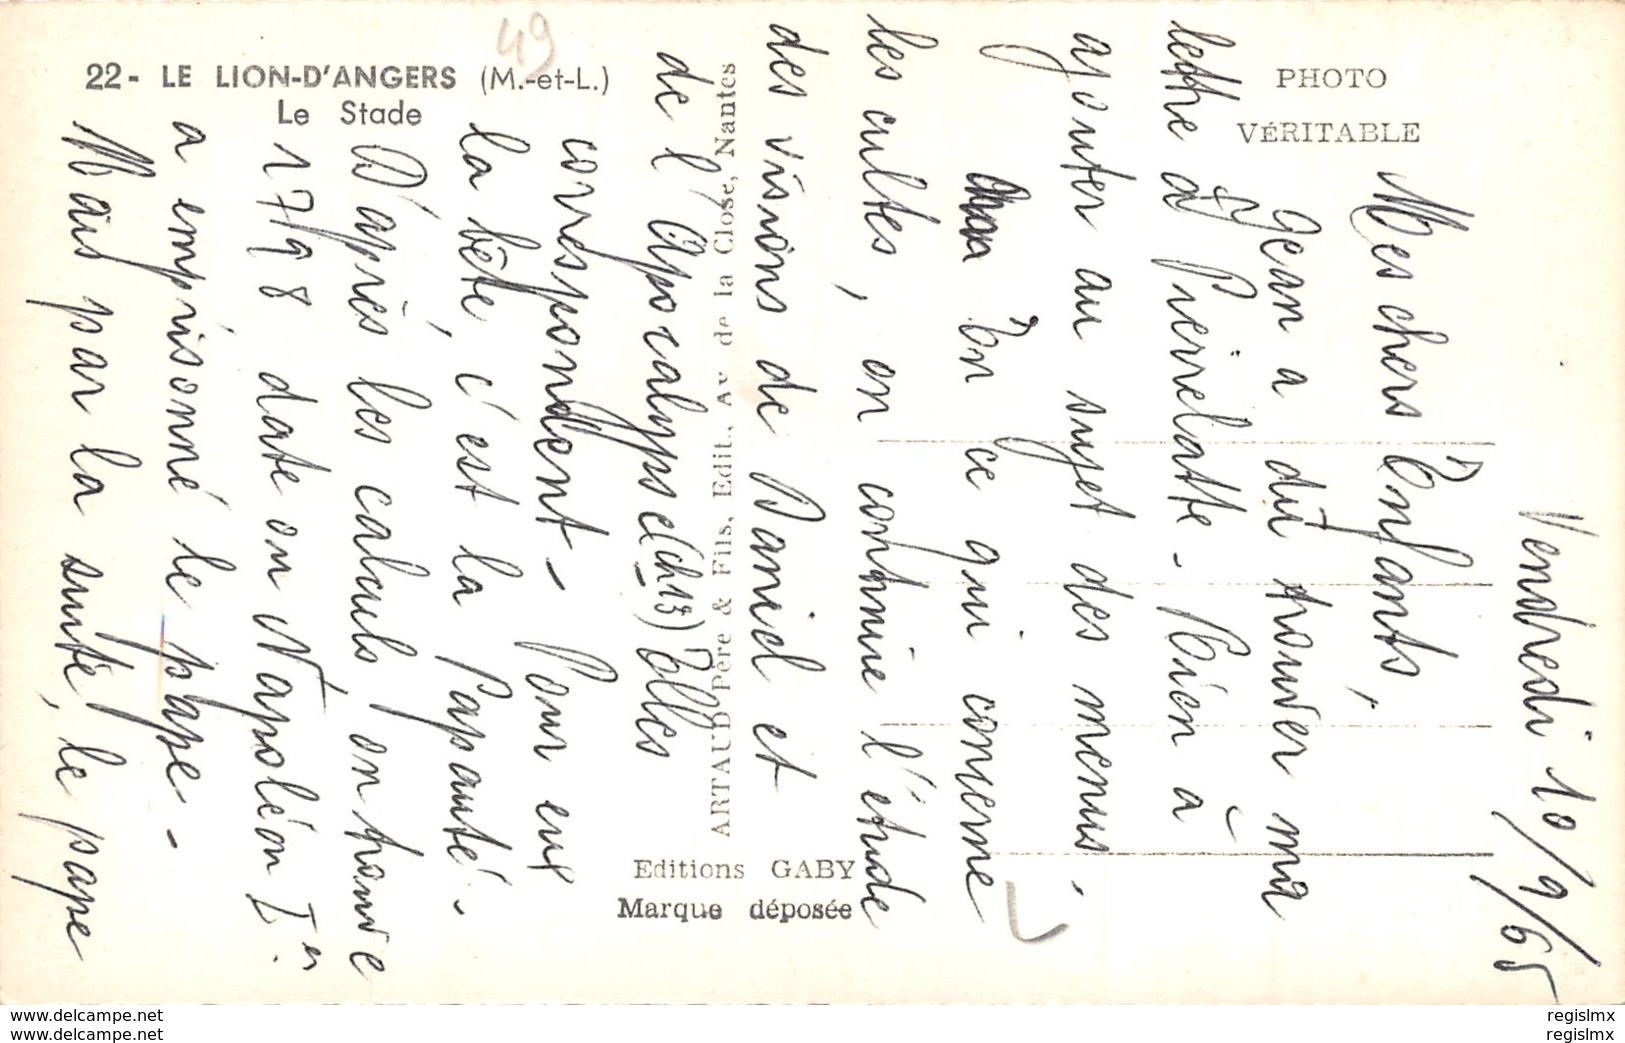 22 - LE LION-D'ANGERS (M.-et-L.)
Le Stade
49
PHOTO
VÉRITABLE
ARTAUD Père & Fils, Edit., Av. de la Close, Nantes
Editions GABY
Marque déposée
Vendredi 10/9/65
Mes chers Enfants,
Jean a dû trouver ma
lettre à Pierrelatte - Rien à
ajouter au sujet des menus.
En ce qui concerne
les cultes, on continue l'étude
des visions de Daniel et
de l'Apocalypse (ch 13) Elles
correspondent - Pour eux
la bête, c'est la Papauté -
D'après les calculs, on trouve
1798 date où Napoléon Ier
a emprisonné le pape -
Mais par la suite, le pape
www.delcampe.net
www.delcampe.net
regislmx
regislmx